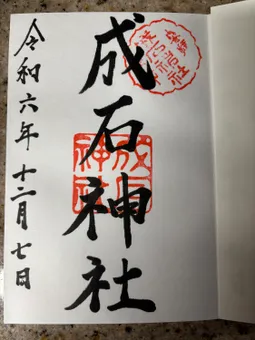 成石神社
令和六年十二月七日
成石
神社